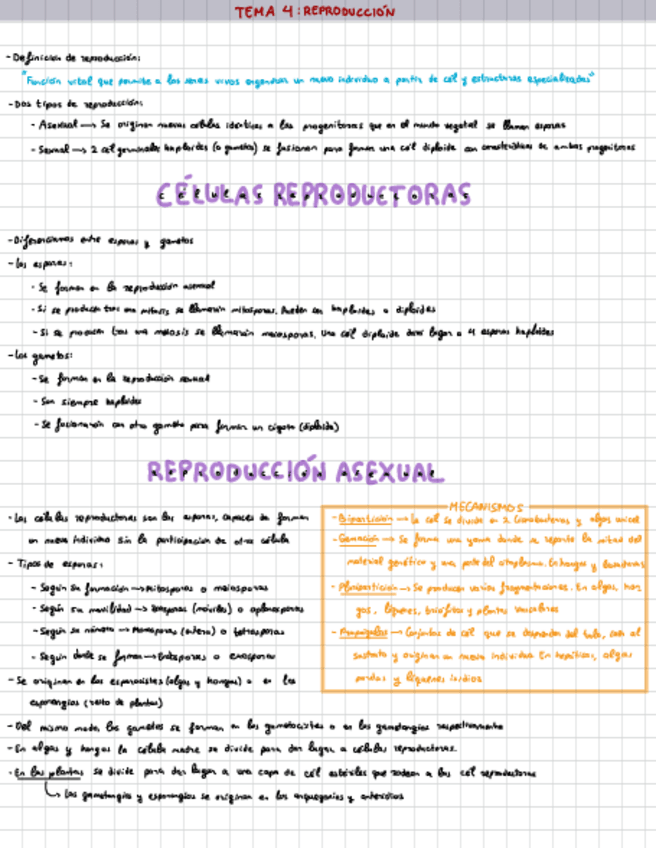 TEMA 4: REPRODUCCIÓN
- Definición de reproducción:
"Función vital que permite a los seres vivos organizar un nuevo individuo a partir de cél y estructuras especializadas"
- Dos tipos de reproducción:
- Asexual → Se originan nuevas células idénticas a las progenitoras que en el mundo vegetal se llaman esporas
- Sexual → 2 cél germinales haploides (o gametos) se fusionan para formar una cél diploide con características de ambos progenitores
CÉLULAS REPRODUCTORAS
- Diferenciamos entre esporas y gametos
- Las esporas:
- Se forman en la reproducción asexual
- Si se producen tras una mitosis se llamarán mitosporas. Pueden ser haploides o diploides
- Si se producen tras una meiosis se llamarán meiosporas. Una cél diploide dará lugar a 4 esporas haploides
- Los gametos:
- Se forman en la reproducción sexual
- Son siempre haploides
- Se fusionarán con otro gameto para formar un cigoto (diploide)
REPRODUCCIÓN ASEXUAL
- Las células reproductoras son las esporas, capaces de formar
un nuevo individuo sin la participación de otra célula
- Tipos de esporas:
- Según su formación → Mitosporas o meiosporas
- Según su movilidad → Zoosporas (móviles) o aplanosporas
- Según su número → Monosporas (entero) o tetrasporas
- Según donde se forman → Endosporas o exosporas
- Se originan en los esporocistes (algas y hongos) o en los
esporangios (resto de plantas)
MECANISMOS
- Bipartición → La cél se divide en 2. Cianobacterias y algas unicel
- Gemación → Se forma una yema donde se reparte la mitad del
material genético y una parte del citoplasma. En hongos y levaduras
- Pluripartición → Se producen varias fragmentaciones. En algas, hon
gos, líquenes, briofitas y plantas vasculares
- Propágulos → Conjuntos de cél que se desprenden del talo, caen al
sustrato y originan un nuevo individuo. En hepáticas, algas
pardas y líquenes
- Del mismo modo, los gametos se forman en los gametocistes o en los gametangios respectivamente
- En algas y hongos la célula madre se divide para dar lugar a células reproductoras.
- En las plantas se divide para dar lugar a una capa de cél estériles que rodean a las cél reproductoras
↳ Los gametangios y esporangios se originan en los arquegonios y anteridios